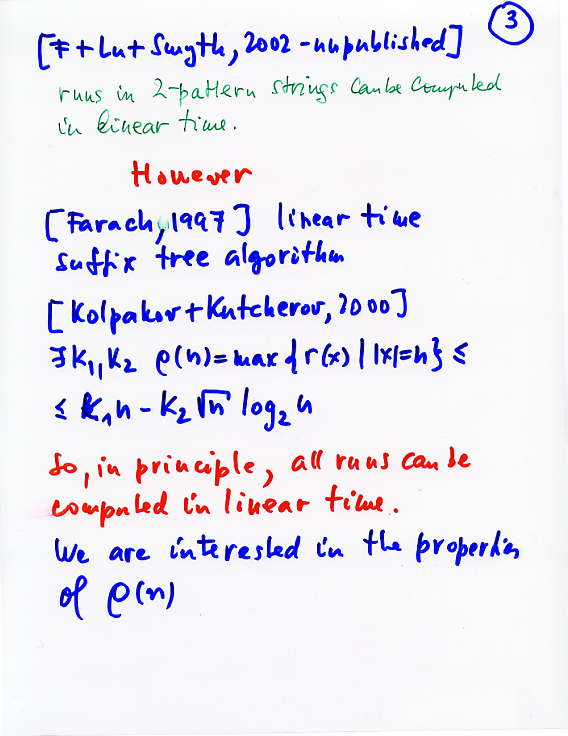 3
[F + Lu + Smyth, 2002 - unpublished]
runs in 2-pattern strings can be computed
in linear time.
However
[Farach, 1997] linear time
suffix tree algorithm
[Kolpakov + Kutcherov, 2000]
∃ K₁, K₂ ρ(n) = max { r(x) | |x| = n } ≤
≤ K₁n - K₂ √n log₂ n
So, in principle, all runs can be
computed in linear time.
We are interested in the properties
of ρ(n)